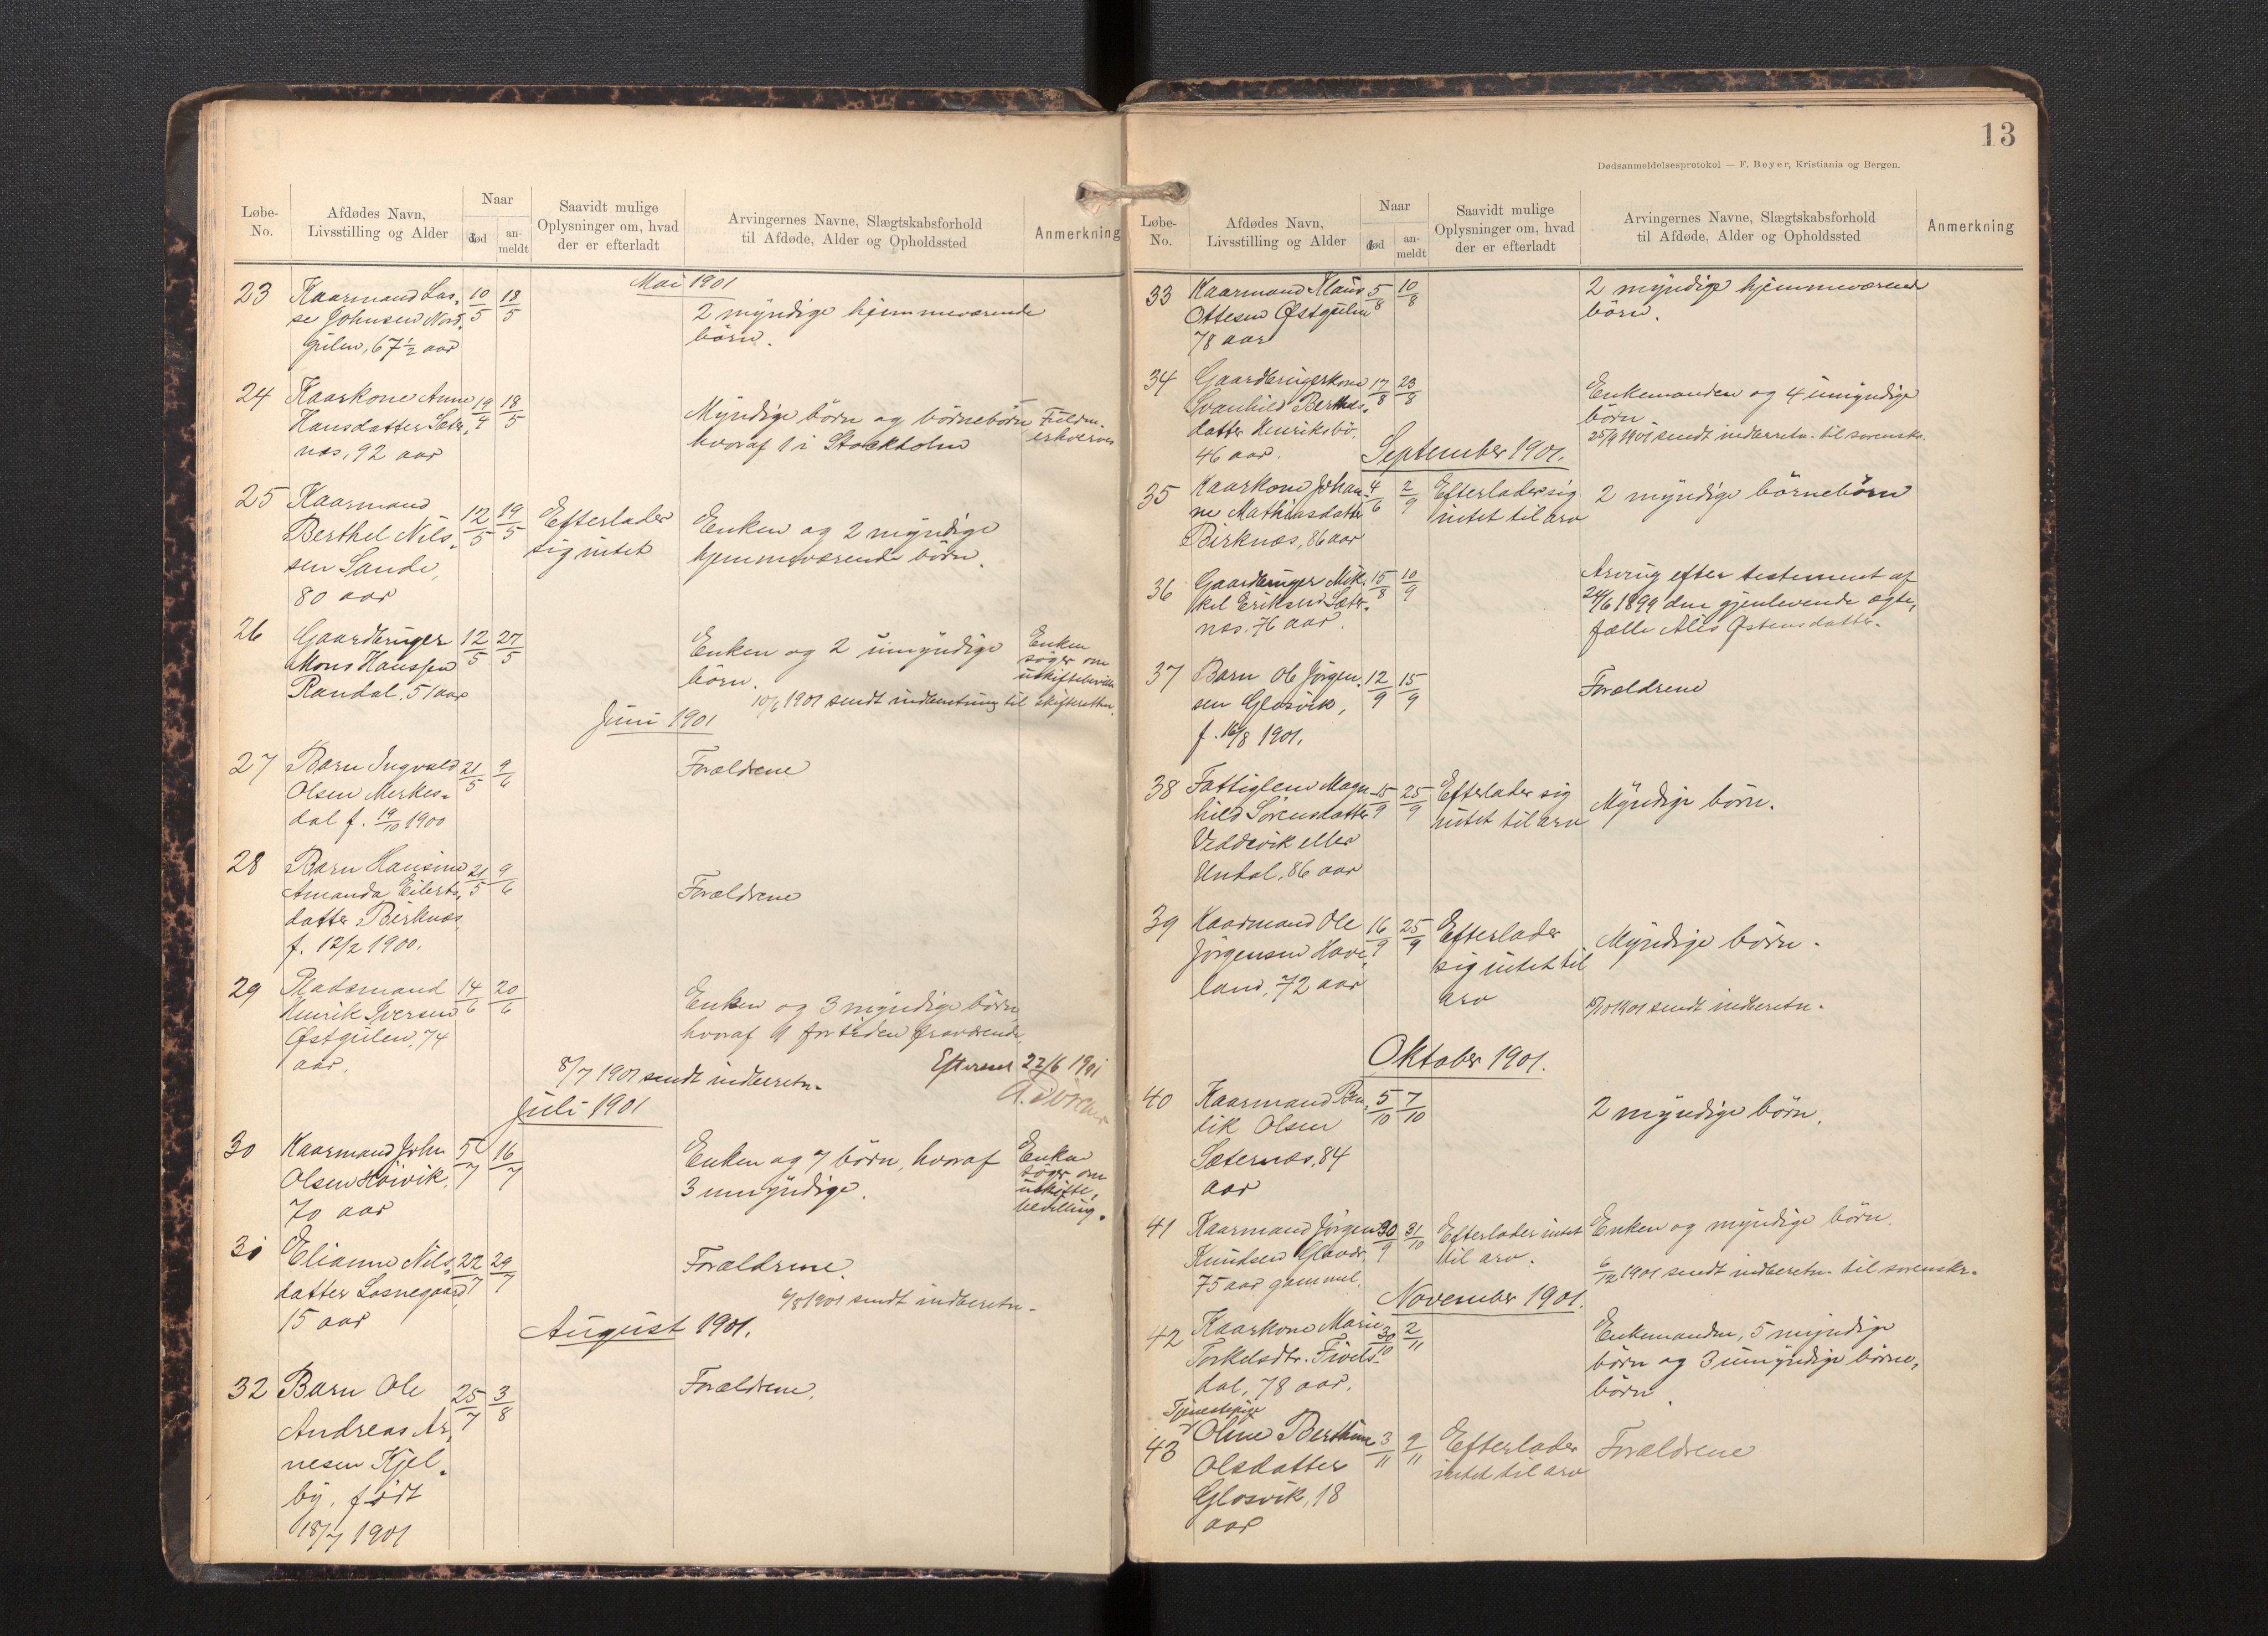 Løbe-No.
Afdødes Navn, Livsstilling og Alder
Naar
død
an-meldt
Saavidt mulige Oplysninger om, hvad der er efterladt
Arvingernes Navne, Slægtskabsforhold til Afdøde, Alder og Opholdssted
Anmerkning
Mai 1901
23 Kaarmand Las- 10/5 18/5
se Johnsen Nord- 2 myndige hjemmeværende
gulen, 67 1/2 aar børn.
24 Kaarkone Anne 19/4 18/5
Hansdatter Sæter- Myndige børn og børnebørn
næs, 92 aar hvoraf 1 i Stockholm
25 Kaarmand 12/5 19/5 Efterlader Enken og 2 myndige
Berthel Nils- sig intet hjemmeværende børn.
sen Sande,
80 aar
26 Gaardbruger 12/5 27/5 Enken og 2 umyndige Enken
Mons Hanssen børn. søger om
Randal, 51 aar
10/6 1901 sendt indberetning til skifteretten.
Juni 1901
27 Barn Ingvald 21/5 9/6 Forældrene
Olsen Merkes-
dal f. 19/10 1900
28 Barn Hansine 21/5 9/6
Amanda Eilerts- Forældrene
datter Birknæs,
f. 12/2 1900.
29 Pladsmand 14/6 20/6 Enken og 3 myndige børn
Henrik Iversen hvoraf 1 for tiden fraværende
Østgulen, 74
aar.
8/7 1901 sendt indberetn. Efterseet 22/6 1901
Juli 1901
30 Kaarmand John 5/7 16/7 Enken og 7 børn, hvoraf Enken
Olsen Høivik, 3 umyndige. søger om
70 aar uskifte-
bevilling.
31 Elianne Nils- 22/7 29/7 Forældrene.
datter Losnegaard,
15 aar
6/8 1901 sendt indberetn.
August 1901.
32 Barn Ole 25/7 3/8 Forældrene.
Andreas Ar-
nesen Kjel-
by, født
18/7 1901
13
Dødsanmeldelsesprotokol — F. Beyer, Kristiania og Bergen.
Løbe-No.
Afdødes Navn, Livsstilling og Alder
Naar
død
an-meldt
Saavidt mulige Oplysninger om, hvad der er efterladt
Arvingernes Navne, Slægtskabsforhold til Afdøde, Alder og Opholdssted
Anmerkning
33 Kaarmand Klaus 5/8 10/8 2 myndige hjemmeværende
Ottesen Østgulen børn.
78 aar
34 Gaardbrugerkone 17/8 23/8 Enkemanden og 4 umyndige
Svanhild Berthes- børn
datter Henriksbø,
46 aar.
25/9 1901 sendt indberetn. til sorenskr.
September 1901.
35 Kaarkone Johan- 4/6 2/9 Efterlader sig 2 myndige børnebørn
ne Mathiasdatter intet til arv
Birknæs, 86 aar
36 Gaardbruger Mik- 15/8 10/9 Arving efter testement af
kel Eriksen Sæter- 24/6 1899 den gjenlevende ægte-
næs. 76 aar. fælle Alis Østensdatter.
37 Barn Ole Jørgen- 12/9 15/9 Forældrene
sen Glosvik,
f. 16/8 1901.
38 Fattiglem Magn- 15/9 25/9 Efterlader sig Myndige børn.
hild Sørensdatter intet til arv
Veddevik eller
Undal, 86 aar
39 Kaarmand Ole 16/9 25/9 Efterlader Myndige børn.
Jørgensen Have- sig intet til
land, 72 aar arv
1901 sendt indberetn.
Oktober 1901.
40 Kaarmand Ben- 5/10 7/10 2 myndige børn.
dik Olsen
Sæternæs, 84
aar
41 Kaarmand Jørgen 30/9 31/10 Efterlader intet Enken og myndige børn.
Knudsen til arv.
75 aar gammel.
6/12 1901 sendt indberetn. til sorenskr.
November 1901.
42 Kaarkone Marie 30/10 2/11 Enkemanden, 5 myndige
Torkelsdtr. Fivels- børn og 3 umyndige børne-
dal, 78 aar. børn.
Tjenestepige
43 Oline Berthine 3/11 9/11 Efterlader Forældrene
Olsdatter intet til arv
Glosvik, 18
aar